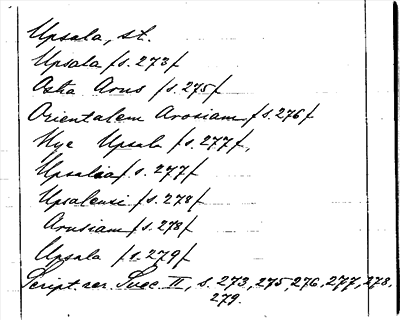 Upsala, st.
Upsala /s. 273/
Østra Aros /s. 275/
Orientalem Arosiam /s. 276/
Nye Upsal /s. 277/,
Upsalia /s. 277/
Upsalensi /s. 278/
Arusiam /s. 278/
Upsala /s. 279/
Script. rer. Svec. II, s. 273, 275, 276, 277, 278,
279.